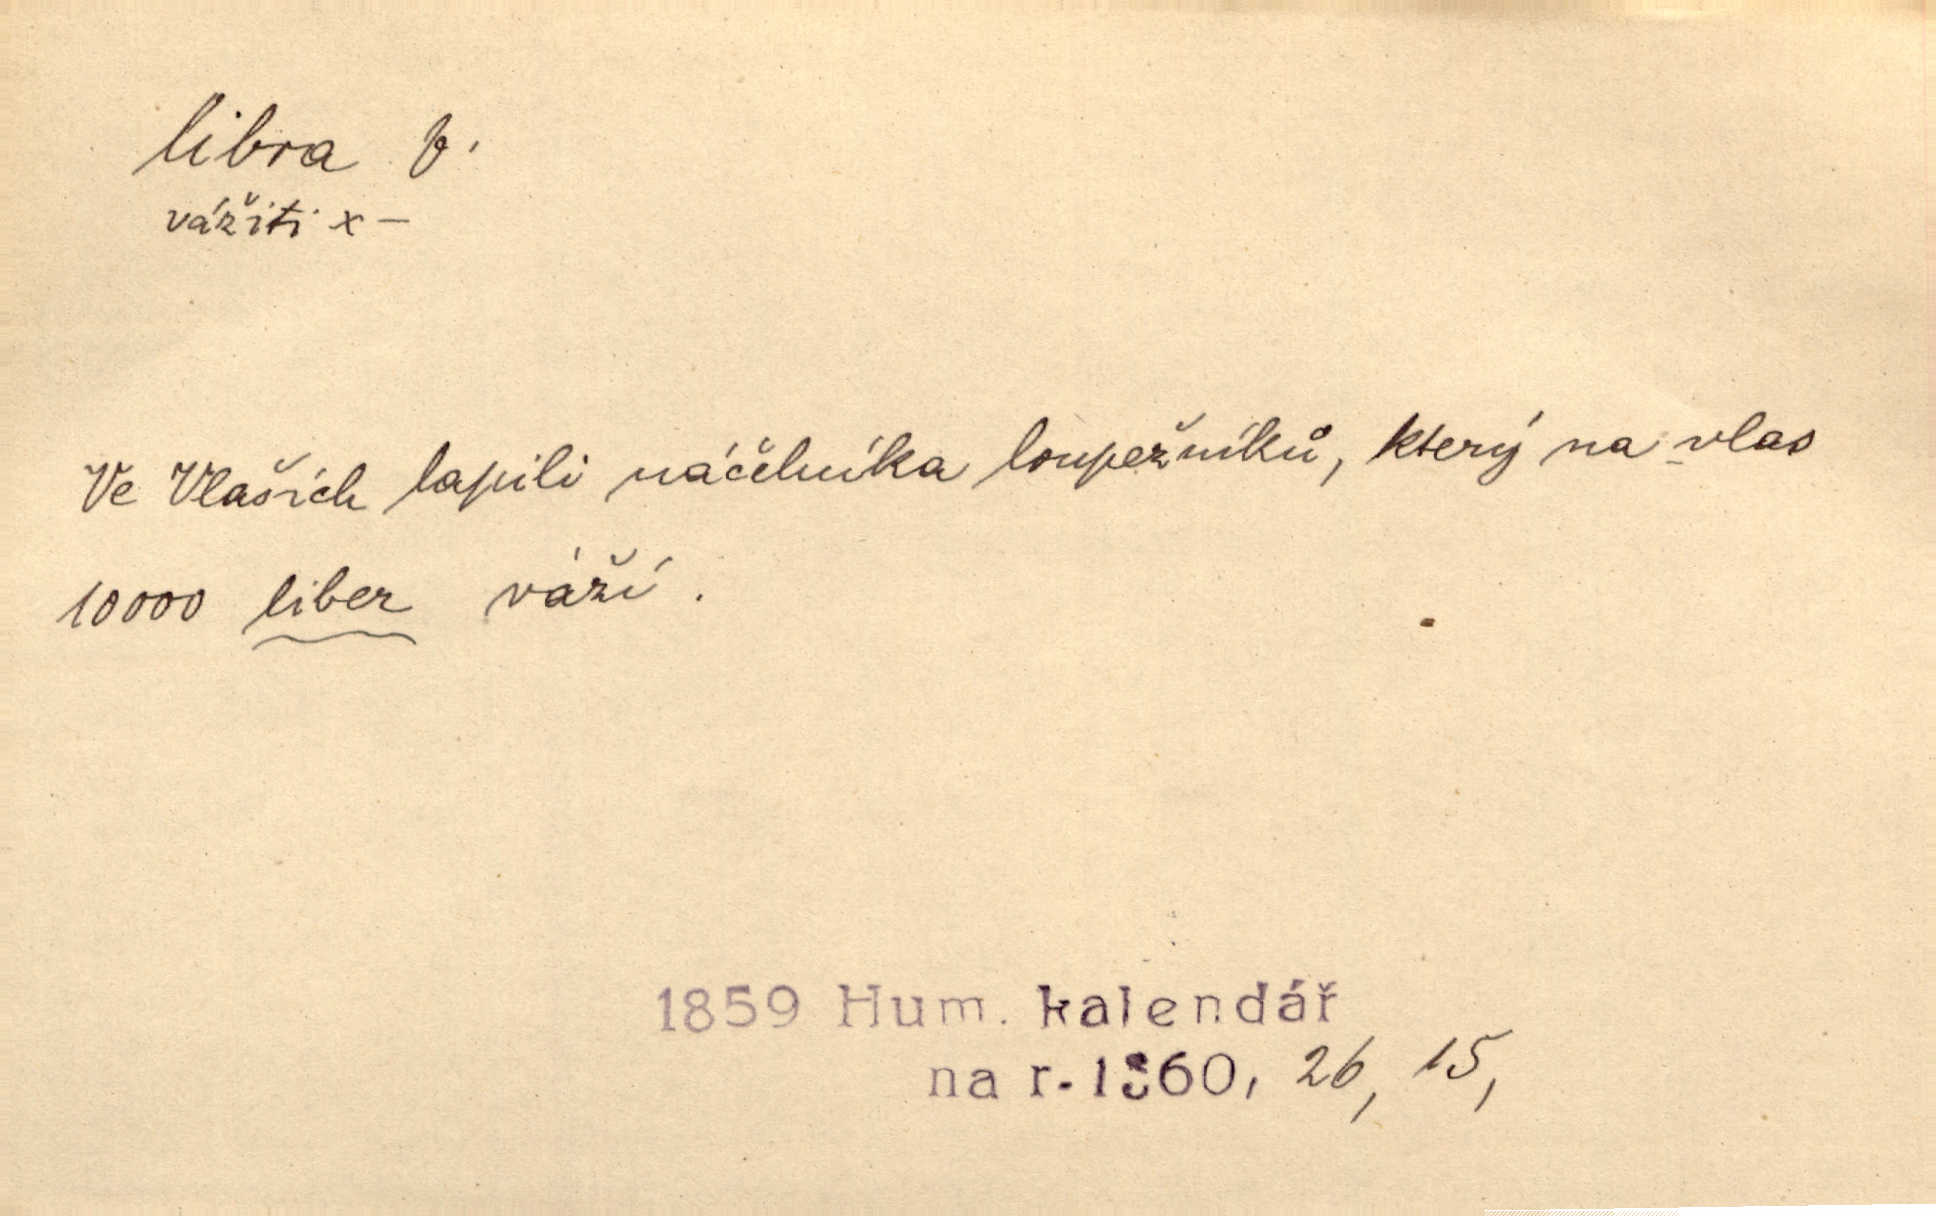 libra f.
vážiti x –
Ve Vlaších lapili náčelníka loupežníků, který na vlas
10000 liber váží.
1859 Hum. kalendář
na r. 1860, 26, 15,